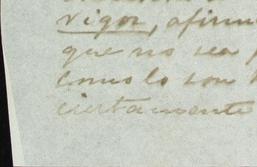 vigor, afirm
que no sea
como lo son
ciertamente